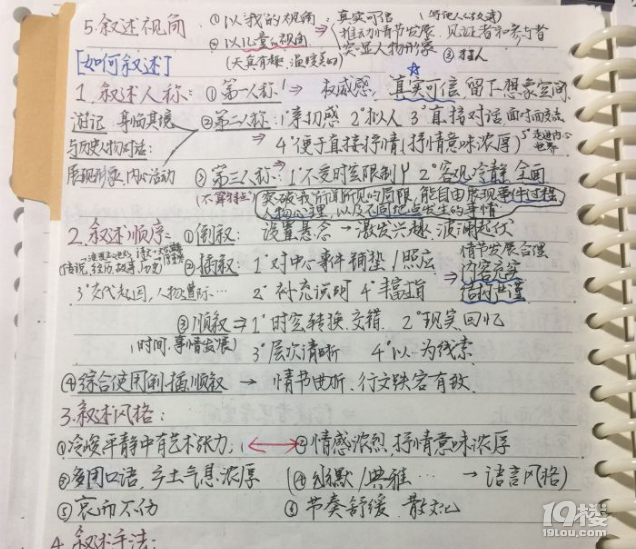 5.叙述视角 ①以我的视角 真实可信
②以儿童的视角 ⇒ 推动情节发展、见证者和参与者
(天真有趣、温暖美好) 突显人物形象 ③ 旁人
[如何叙述]
1.叙述人称: ①第一人称 ⇒ 权威感, 真实可信 留下想象空间
游记 身临其境 ②第二人称: 1°亲切感 2°拟人 3°直接对话 面对面交流
与历史人物对话: 4°便于直接抒情(抒情意味浓厚) 5°走进内心世界
展现形象、内心活动 ③第三人称: 1°不受时空限制 2°客观冷静 全面
突破我所闻所见的局限, 能自由展现事件过程
人物心理, 以及不同地点发生的事情
2.叙述顺序: ①倒叙: 设置悬念 → 激发兴趣, 波澜起伏
②插叙: 1°对中心事件铺垫/照应 情节发展合理
⇒ 内容充实
3°交代起因, 人物遭际… 2°补充说明 4°丰富 结构严谨
③顺叙 ⇒ 1°时空转换、交错 2°现实、回忆
(时间、事情发展) 3°层次清晰 4°以一为线索
④综合使用倒插顺叙 → 情节曲折、行文跌宕有致
3.叙述风格:
①冷峻平静中有艺术张力; ②情感浓烈, 抒情意味浓厚
③多用口语、乡土气息浓厚 (④幽默/典雅… → 语言风格)
⑤哀而不伤 ⑥节奏舒缓、散文化
4.叙述手法:
19楼
19lou.com